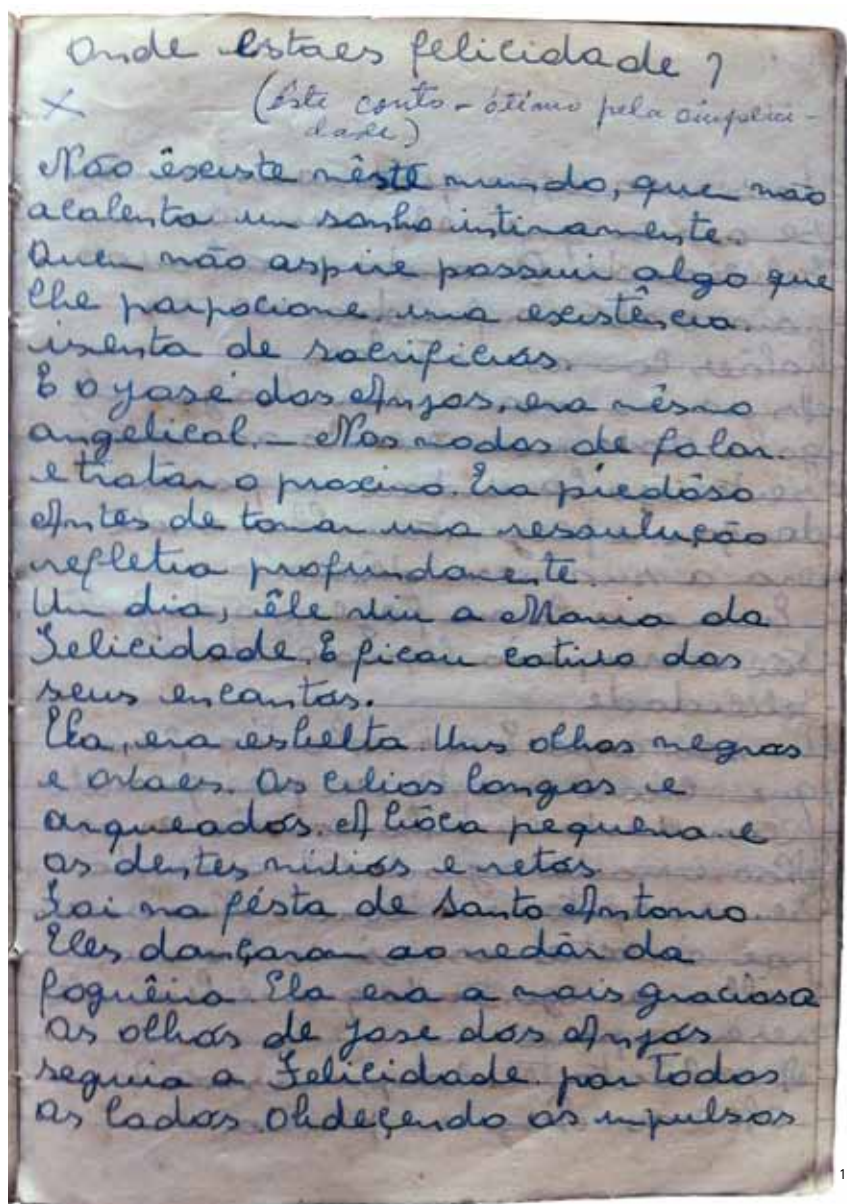 Onde estaes felicidade ?
X (êste conto - ótimo pela simplici-
dade)
Não êxiste nêste mundo, quem não
acalenta um sonho intimamente.
Quem não aspire possuir algo que
lhe parpocione uma existência
isenta de sacrificiós.
E o José dos Anjos, era mêsmo
angelical. – Nos modos de falar
e tratar o proximo. Era piedóso
Antes de tomar uma resoulução
refletia profundamente.
Um dia, êle viu a Maria da
Felicidade. E ficou cativo dos
seus encantos.
Ela, era esbelta. Uns olhos negros
e ovaes. Os cilios longos e
arqueadós. A bôca pequena e
os dentes nidiós e retos
Foi na fésta de Santo Antonio.
Eles dançaram ao redór da
foguêira Ela era a mais graciosa
Os olhós de José dos Anjós
seguia a Felicidade por todos
os lados. Obdeçendo os impulsos
1